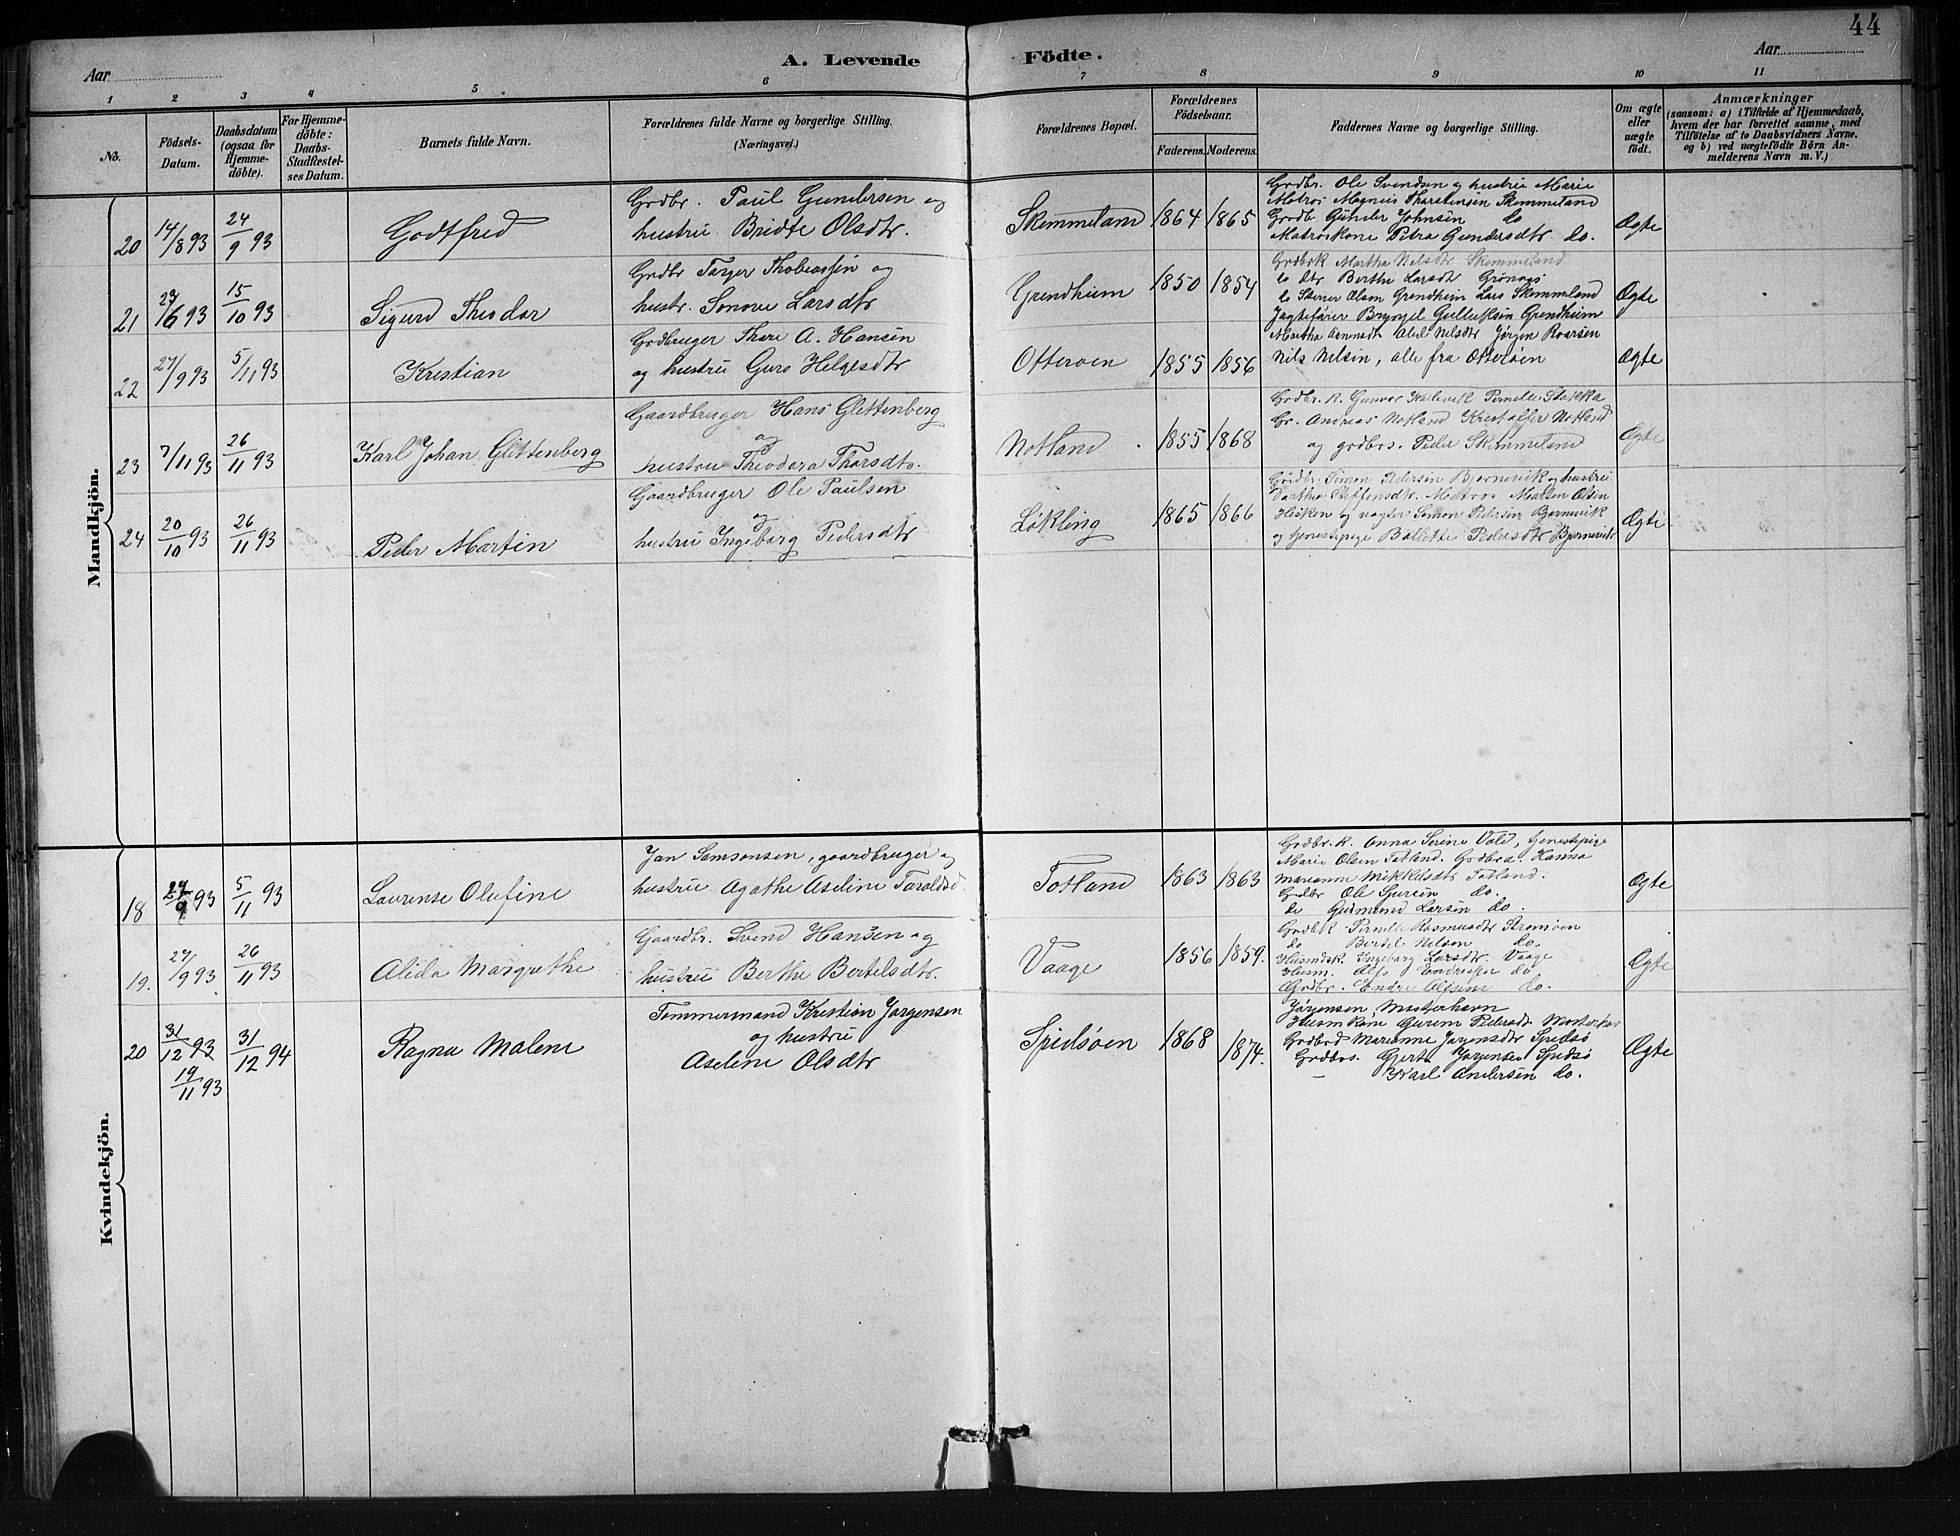 44
Aar
A. Levende Födte.
Aar
1 2 3 4 5 6 7 8 9 10 11
No.
Födsels-Datum.
Daabsdatum (ogsaa for Hjemme-döbte).
For Hjemme-döbte: Daabs-Stadfæstel-ses Datum.
Barnets fulde Navn.
Forældrenes fulde Navne og borgerlige Stilling. (Næringsvei.)
Forældrenes Bopæl.
Forældrenes Födselsaar.
Faderens. Moderens.
Faddernes Navne og borgerlige Stilling.
Om ægte eller uægte födt.
Anmærkninger
(sansom: a) i Tilfælde af Hjemmedaab, hvem der har forrettet samme, med Tilföielse af to Daabsvidners Navne. og b) ved uægtefödte Börn Anmelderens Navn m. V.)
Mandkjön.
20 14/8 93 24/9 93 Godtfred
Grdbr. Paul Gundersen og
hustru Bridte Olsdtr.
Skemmeland 1864 1865
Grdbr. Ole Svendsen og hustru Marie
Matros Magnus Tharstensen Skemmeland
Grdb Gunder Johnsen do
Matroskone Petra Gundersdtr do.
Ægte
21 27/6 93 15/10 93 Sigurd Theodor
Grdbr Torger Thobiassen og
hustr. Sonove Larsdtr
Grendheim 1850 1854
Grdbrk Martha Nilsdtr Skemmeland
do Dtr Berthe Larsdtr Grønaas
do Sterrer Olsen Grendheim Lars Skemmeland
Jagtefører Brynjel Gulleksen Grendheim
Ægte
22 27/9 93 5/11 93 Kristian
Godbruger Thore A. Hansen
og hustru Guro Helgesdtr
Otterøen 1855 1856
Martha Arnesdt Abel Nilsdtr Jørgen Roersen
Nils Nilsen, alle fra Otterøen
Ægte
23 7/11 93 26/11 93 Karl Johan Glettenberg
Gaardbruger Hans Glettenberg
og
hustru Theodora Tharsdtr.
Notland 1855 1868
Grdbr. K. Gunvor Pernille Stokka
Gr. Andreas Notland Kristoffer Notland
og grdbos. Peder Skemmeland
Ægte
24 20/10 93 26/11 93 Peder Martin
Gaardbruger Ole Paulsen
og
hustru Ingeborg Pedersdtr
Løkling 1865 1866
Grdbr. Simon Pedersen Bjørnevik og hustru
Martha Steffensdtr. Matros Morten Olsen
og Simon Pedersen Bjørnevik
og Pedersdtr Bjørnevik
Ægte
Kvindekjön.
18 27/9 93 5/11 93 Laurense Olufine
Jan Samsonsen, gaardbruger og
hustru Agathe Aseline Taraldsd
Totland 1863 1863
Grdbr. k. Anna Serine Vold, Genestpige
Marie Olsen Totland. Grdbrd. Hanna
Marianne Mikkelsdtr Totland.
Grdbr Ole Gursen do.
do Gudmund Larsen do.
Ægte
19. 27/9 93 26/11 93 Alida Margrethe
Gaardbr. Svend Hansen og
hustru Berthe Bertelsdtr.
Vaage 1856 1859.
Grdbk Pernille Rasmusdtr Strømøen
do Berdel Nilsen do.
Husmdsk. Ingeborg Larsdtr. Vaage
Husm. Alfs Endresen do
Grdbr. Endre Alfsen do.
Ægte
20 31/12 93 31/12 94 Ragna Malene
19/11 93
Tømmermand Kristian Jørgensen
og hustru
Aseline Olsdtr
Spidsøen 1868 1874.
Jørgensen, Mosterhavn
Husmkone Gurine Pedersdt Mosterhav
Grdbrd Marianne Jørgensdtr Spidsø
Grdbos. Gjert Jørgensen Spidsø
— Karl Andersen do.
Ægte